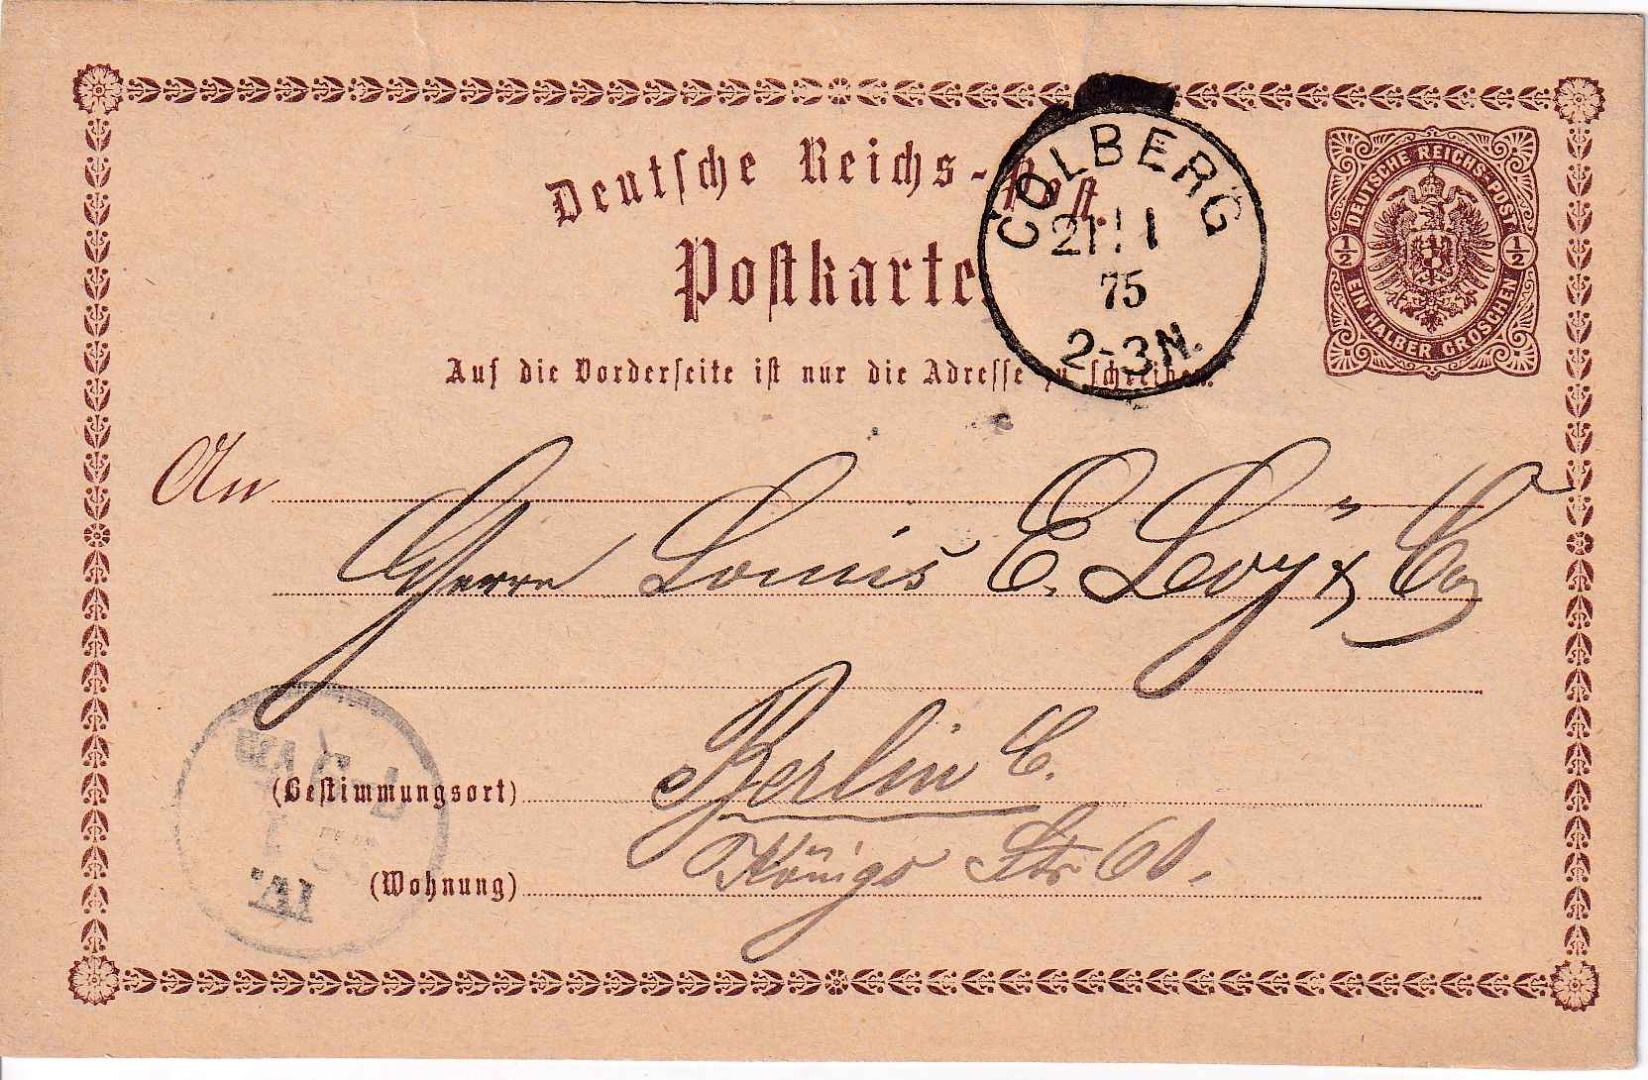 Deutsche Reichs-Post.
Postkarte
Auf die Vorderseite ist nur die Adresse zu schreiben.
COLBERG
21 1
75
2-3N.
DEUTSCHE REICHS-POST
1/2 1/2
EIN HALBER GROSCHEN
An
Herrn Louis E. Levÿ & Co
(Bestimmungsort) Berlin C.
Königs Str 61.
(Wohnung)
IV.